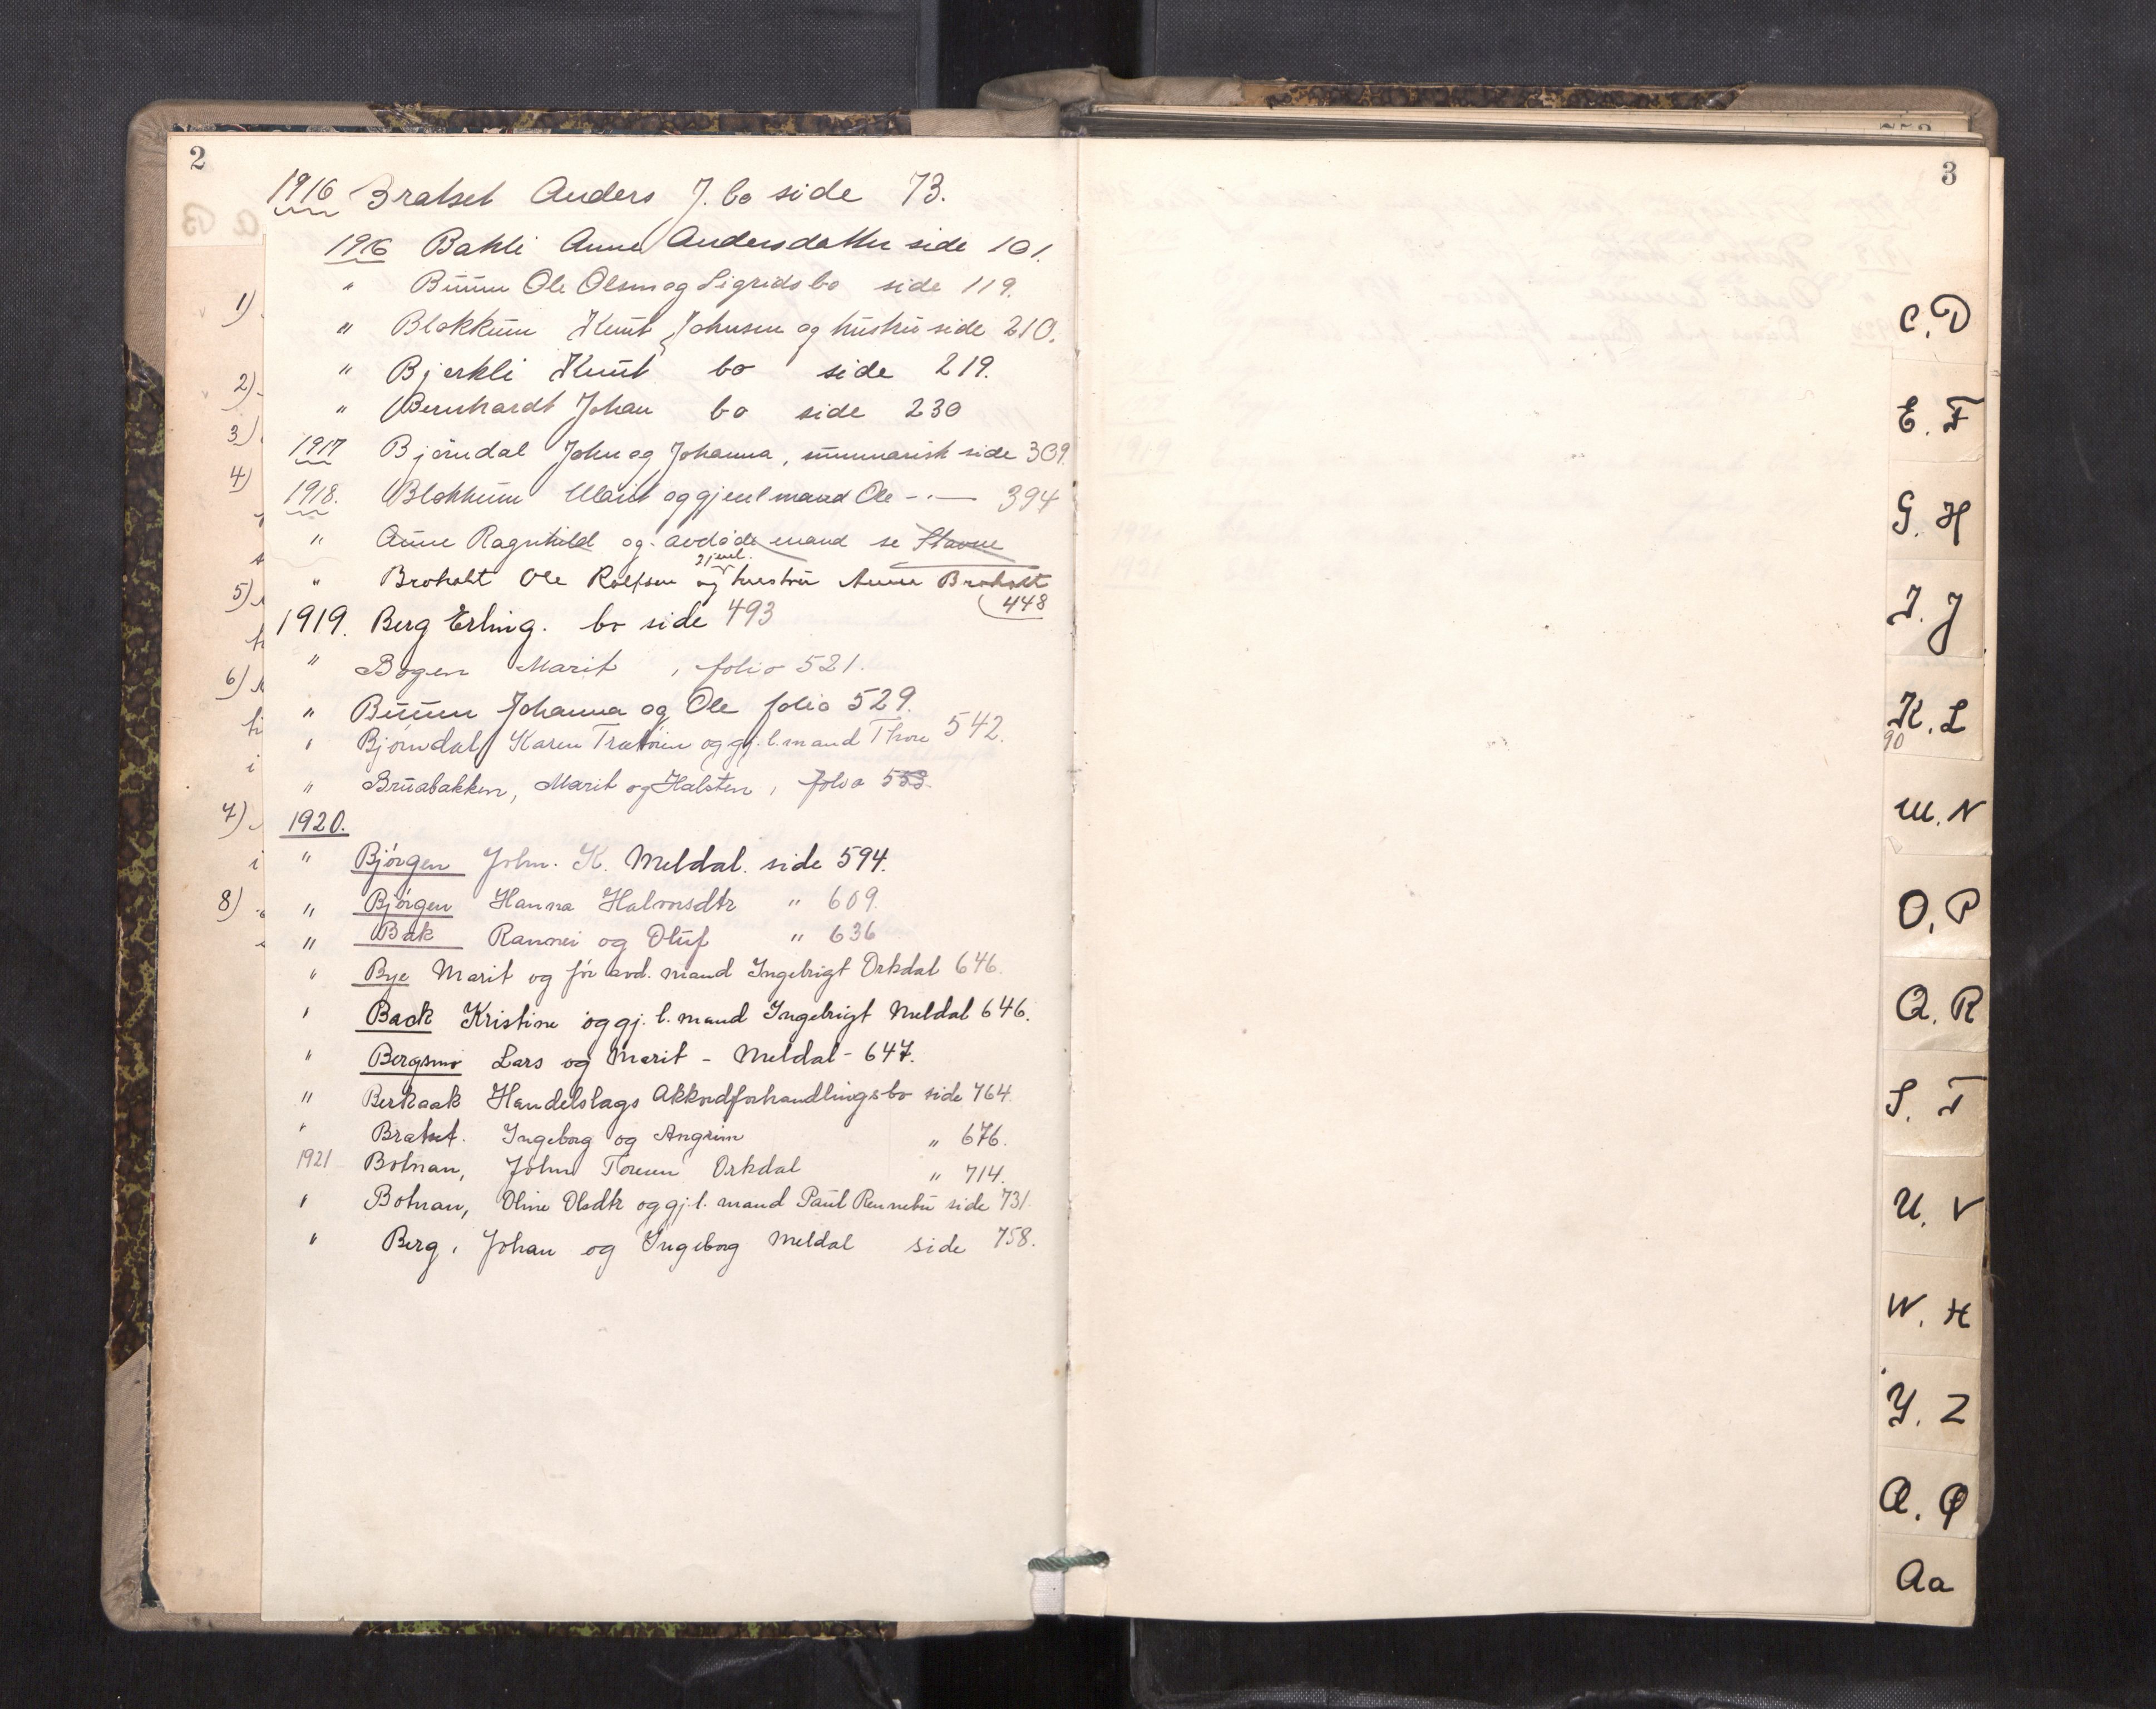 2
1916 Bratset Anders J. bo side 73.
1916 Bakli Anne Andersdatter side 101.
" Buum Ole Olsen og Sigrids bo side 119.
" Blokkum Knut Johnsen og hustru side 210.
" Bjerkli Knut bo side 219.
" Bernhardt Johan bo side 230
1917 Bjørndal John og Johanna, summarisk side 309
1918. Blokkum Marit og gjenl mand Ole -"- 394
" Anne Ragnhild og avdøde mand se Stavne
" Broholt Ole Rolfsen og gjenl. hustru Anne Broholt
448
1919. Berg Erling. bo side 493
" Bogen Marit, folio 521.
" Buum Johanna og Ole folio 529.
" Bjørndal Karen og gj. l. mand Thore 542.
" Bruabakken, Marit og Halsten, folio 553.
1920.
" Bjørgen John. K. Meldal. side 594.
" Bjørgen Hanna Halvorsdtr " 609.
" Bak Rannei og Oluf " 636
" Bye Marit og før avd. mand Ingebrigt Orkdal 646.
" Back Kristine og gj. l. mand Ingebrigt Meldal 646.
" Bergsmo Lars og Marit - Meldal - 647.
" Berkaak Handelslags Akkordforhandlingsbo side 764.
" Bratset. Ingeborg og Angrim " 676.
1921 Botnan, John Orkdal " 714.
" Botnan, Oline Olsdtr og gj. l. mand Paul Rennebu side 731.
" Berg, Johan og Ingeborg Meldal side 758.
1)
2)
3)
4)
5)
6)
7)
8)
3
C. D
E. F
G. H
I. J
K. L
90
M. N
O. P
Q. R
S. T
U. V
W. X
Y. Z
Æ. Ø
Aa